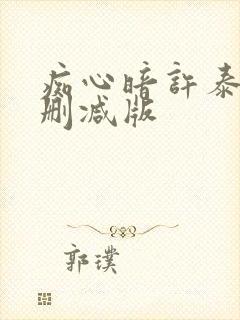 痴心暗許泰
删减版
郭璞